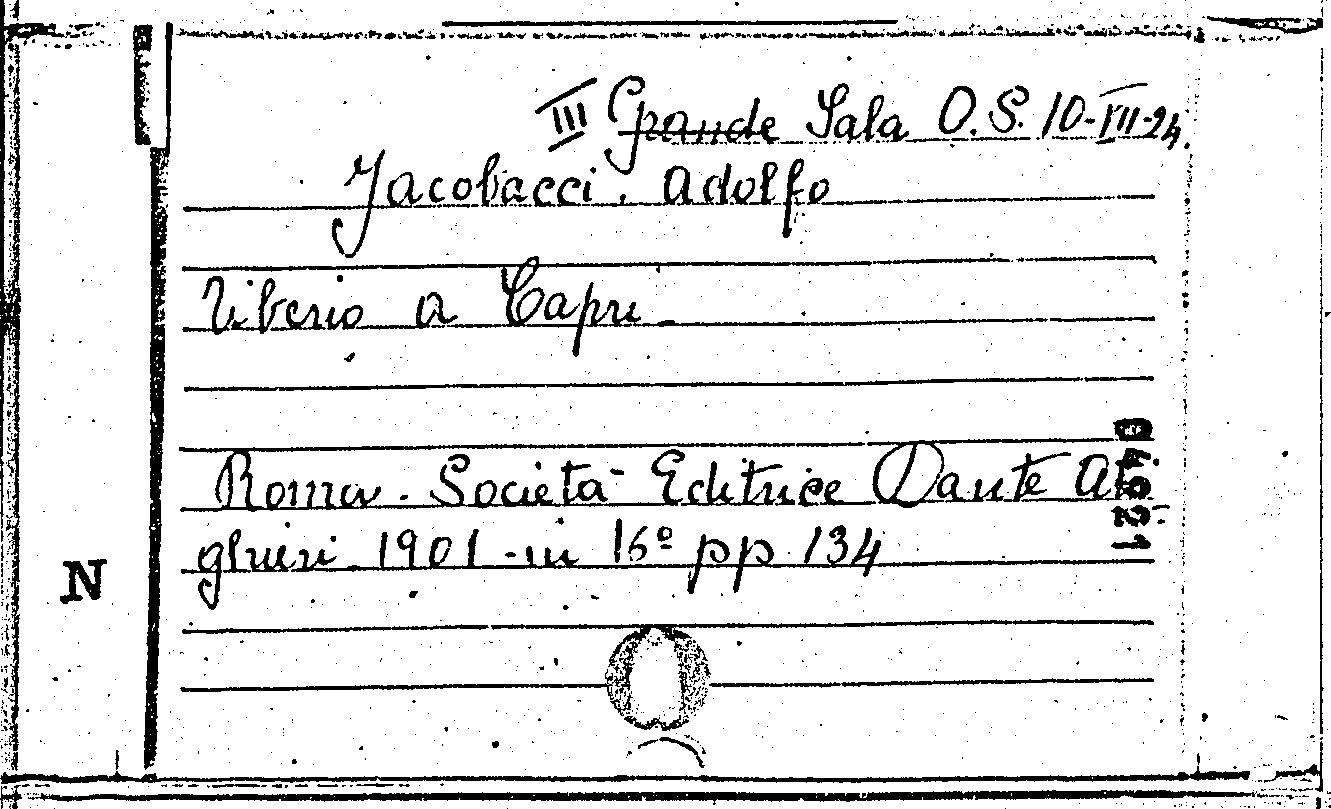 III Grande Sala O.S. 10-VII-24.
Jacobacci. Adolfo
Tiberio a Capri.
Roma. Società Editrice Dante Ali-
ghieri 1901 - in 16º pp 134
N